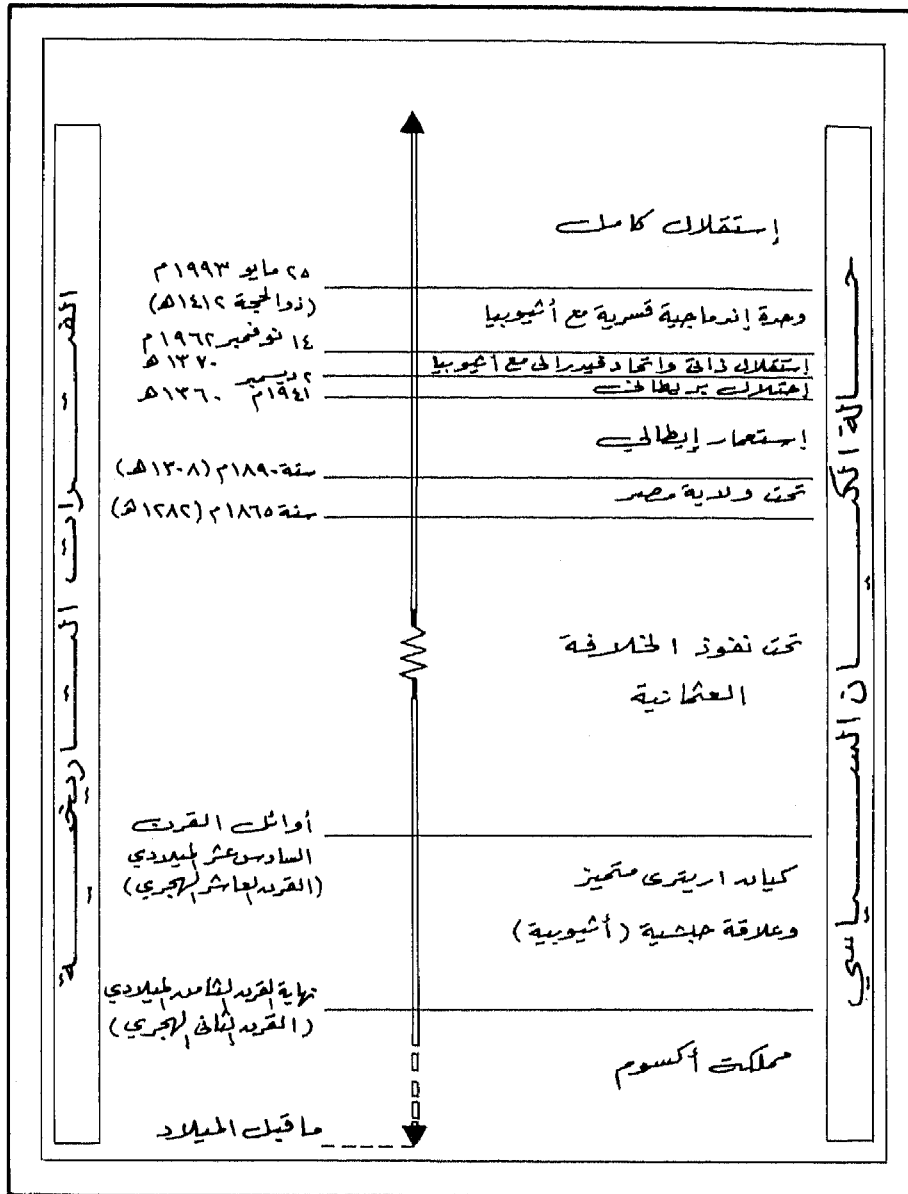 حالة الكيان السياسي
الفترات التاريخية
إستقلال كامل
٢٥ مايو ١٩٩٣م
(ذو الحجة ١٤١٢ه)
وحدة إندماجية قسرية مع أثيوبيا
١٤ نوفمبر ١٩٦٢م
١٣٧٠ه
إستقلال ذاتى واتحاد فيدرالى مع أثيوبيا
٢ ديسمبر
إحتلال بريطانى
١٩٤١م ١٣٦٠ه
إستعمار إيطالي
سنة ١٨٩٠م (١٣٠٨ه)
تحت ولاية مصر
سنة ١٨٦٥م (١٢٨٢ه)
تحت نفوذ الخلافة
العثمانية
أوائل القرن
السادس عشر الميلادي
(القرن العاشر الهجري)
كيان اريترى متميز
وعلاقة حبشية (أثيوبية)
نهاية القرن الثامن الميلادي
(القرن الثانى الهجري)
مملكة أكسوم
ماقبل الميلاد